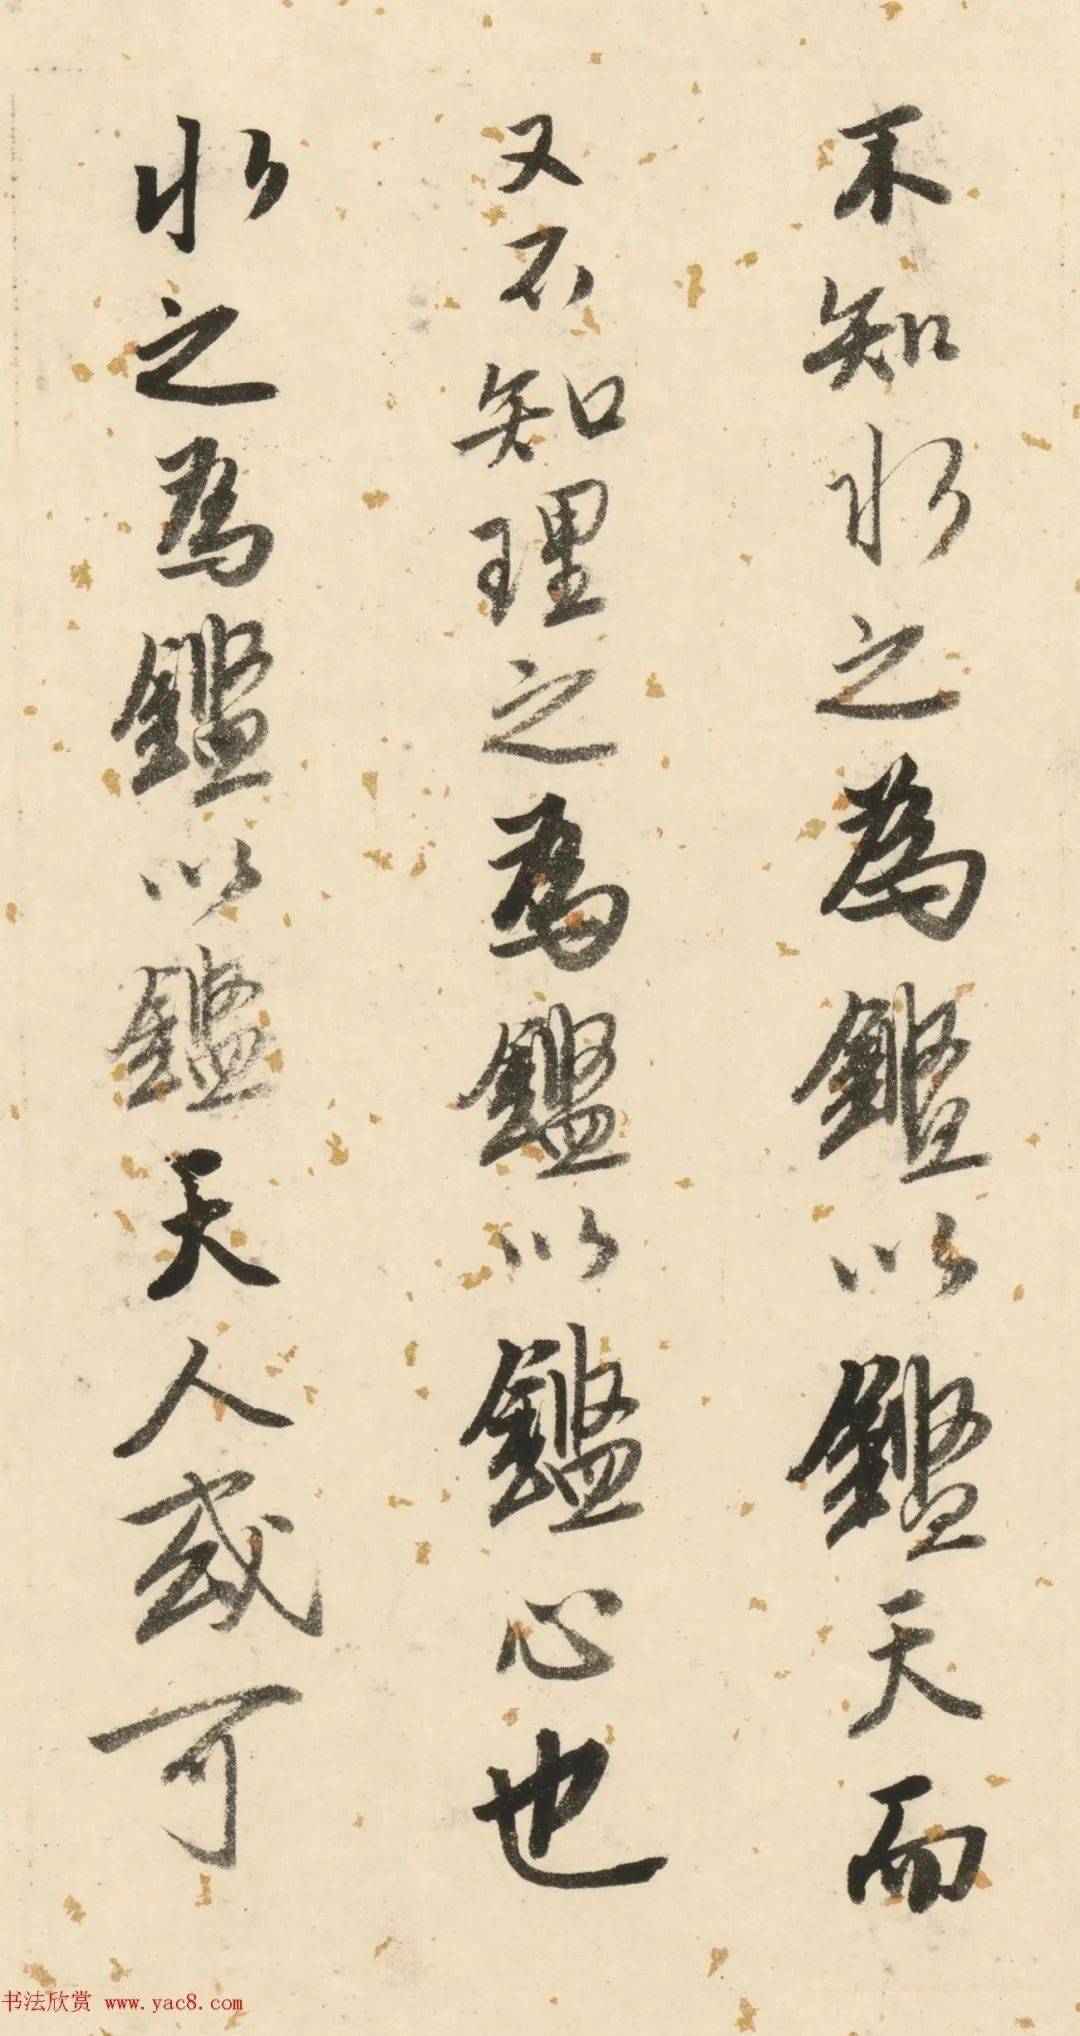 不知水之為鑑以鑑天而
又不知理之為鑑以鑑心也
水之為鑑以鑑天人或可
书法欣赏 www.yac8.com